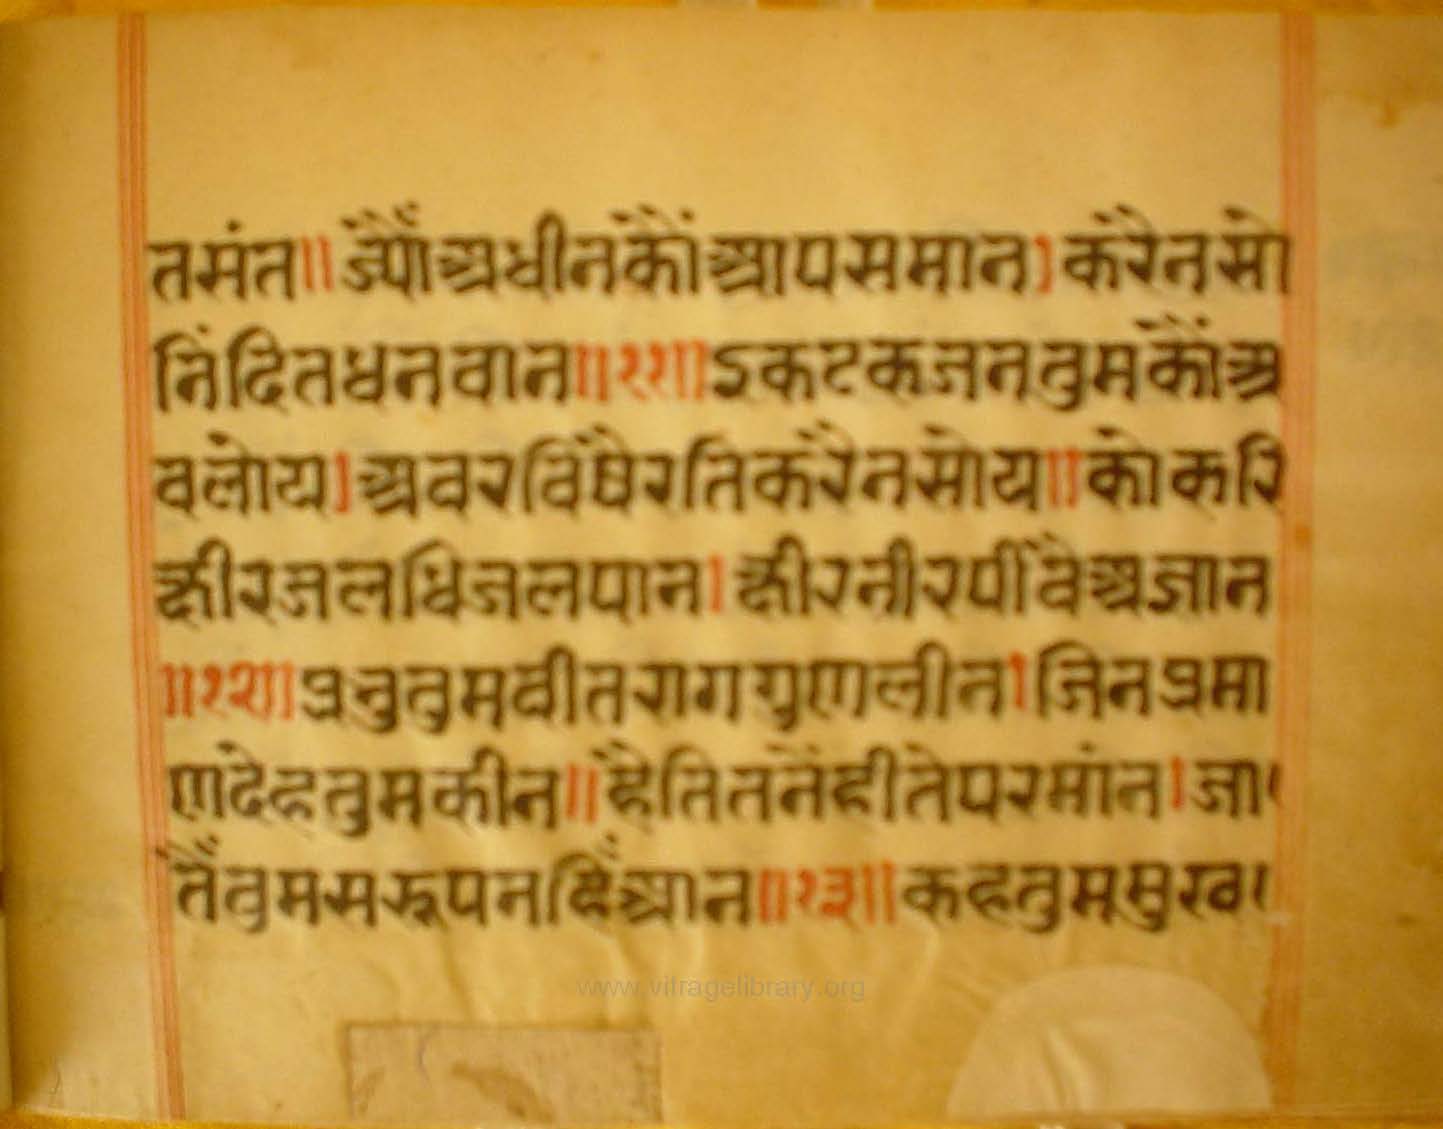 तमंत॥ ज्यौंअधीनकौंआपसमान। करैनसो
निंदितधनवान॥११॥इकटकजनतुमकौंअ
वलोय।अवरविषैरतिकरैनसोय॥कोकरि
क्षीरजलधिजलपान। क्षीरनीरपीवैअज्ञान
॥१२॥प्रभुतुमवीतरागगुणलीन।जिनप्रमा
णदेहतुमकीन॥हैतितनेंहीतेपरमांन।जा
तैंतुमसरूपनहिंआन॥१३॥कहतुममुख
www.vitragelibrary.org